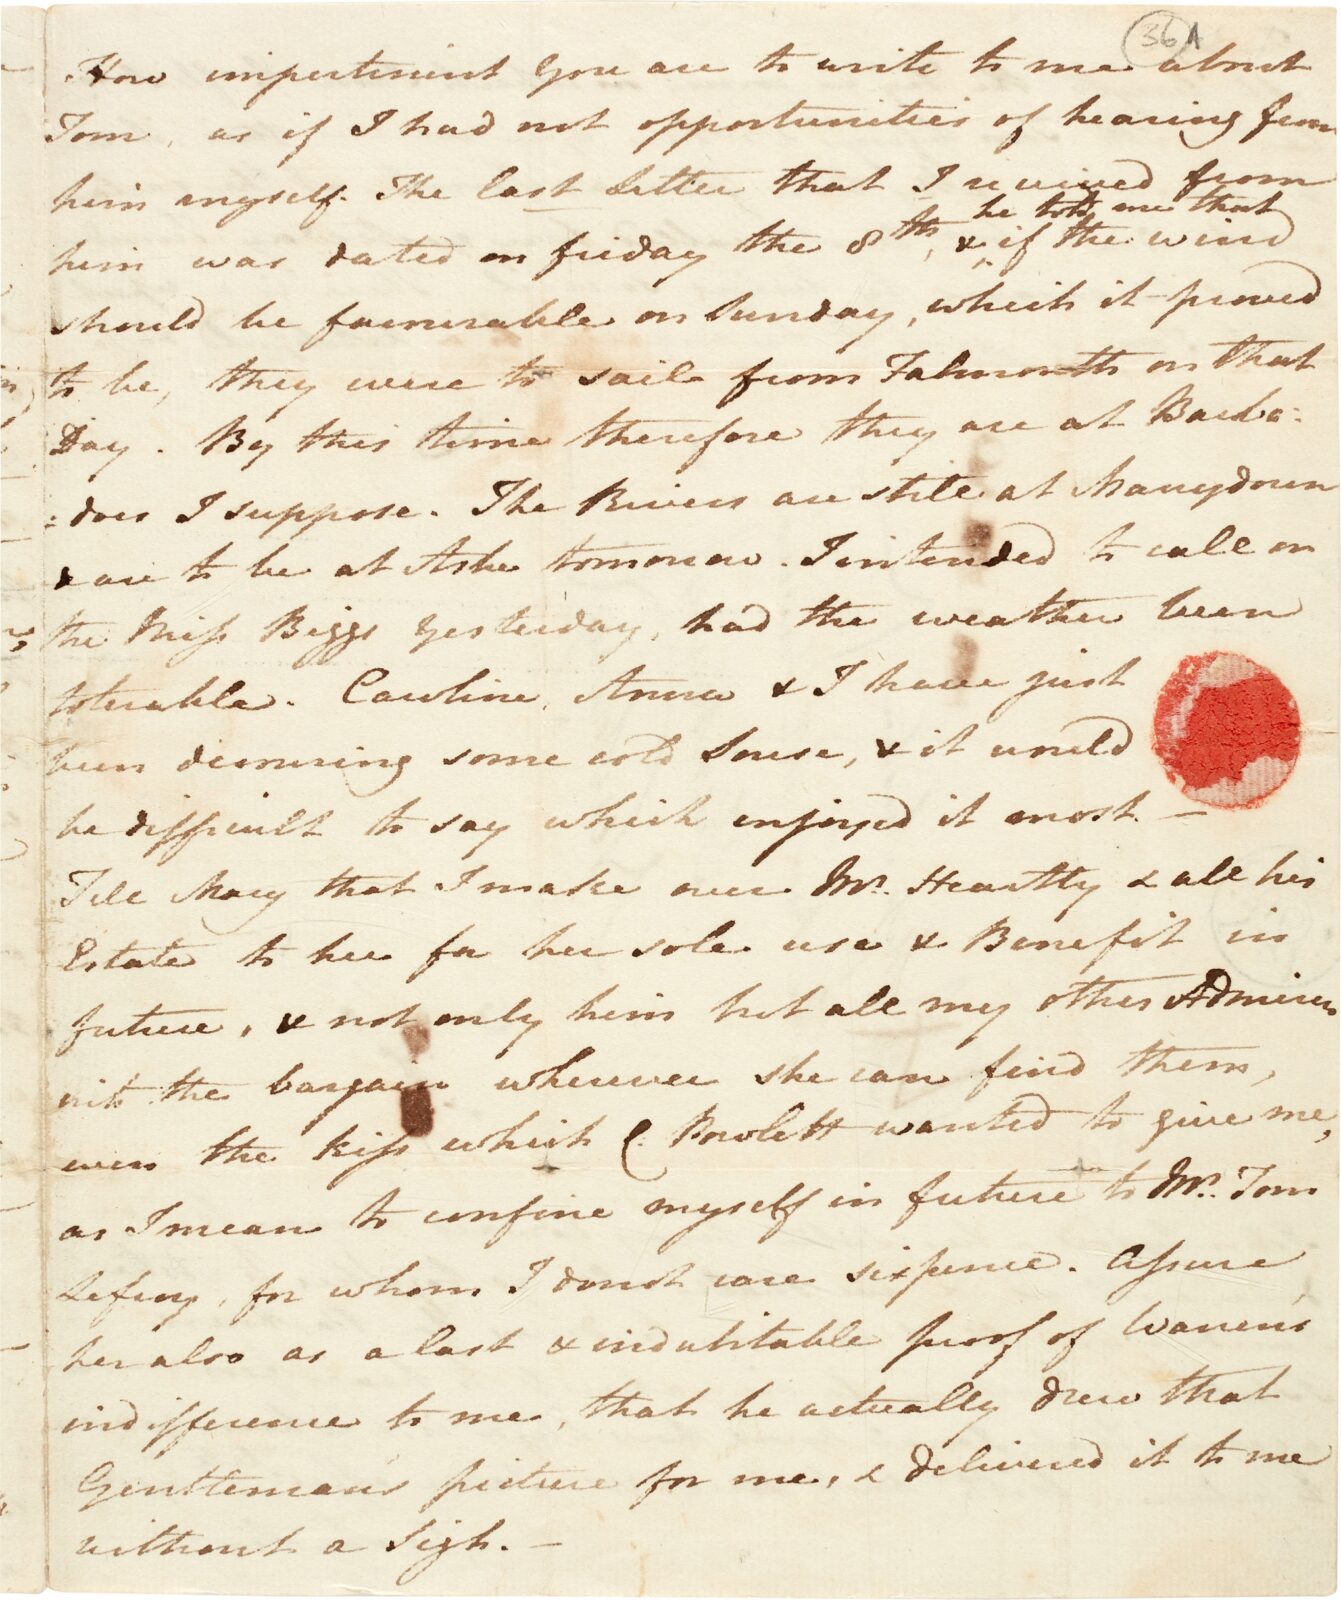 36A
How impertinent you are to write to me about
Tom, as if I had not opportunities of hearing from
him myself. The last Letter that I received from
he told me that
him was dated on Friday the 8th, & if the wind
should be favourable on Sunday, which it proved
to be, they were to sail from Falmouth on that
Day. By this time therefore they are at Barba=
=does I suppose. The Rivers are still at Manydown
& are to be at Ashe tomorrow. I intended to call on
the Miss Biggs yesterday, had the weather been
tolerable. Caroline, Anna & I have just
been devouring some cold Souse, & it would
be difficult to say which enjoyed it most. —
Tell Mary that I make over Mr. Heartley & all his
Estate to her for her sole use & Benefit in
future, & not only him but all my other Admirers
into the bargain wherever she can find them,
even the kiss which C. Powlett wanted to give me,
as I mean to confine myself in future to Mr. Tom
Lefroy, for whom I donot care sixpence. Assure
her also as a last & indubitable proof of Warren's
indifference to me, that he actually drew that
Gentleman's picture for me, & delivered it to me
without a Sigh. —